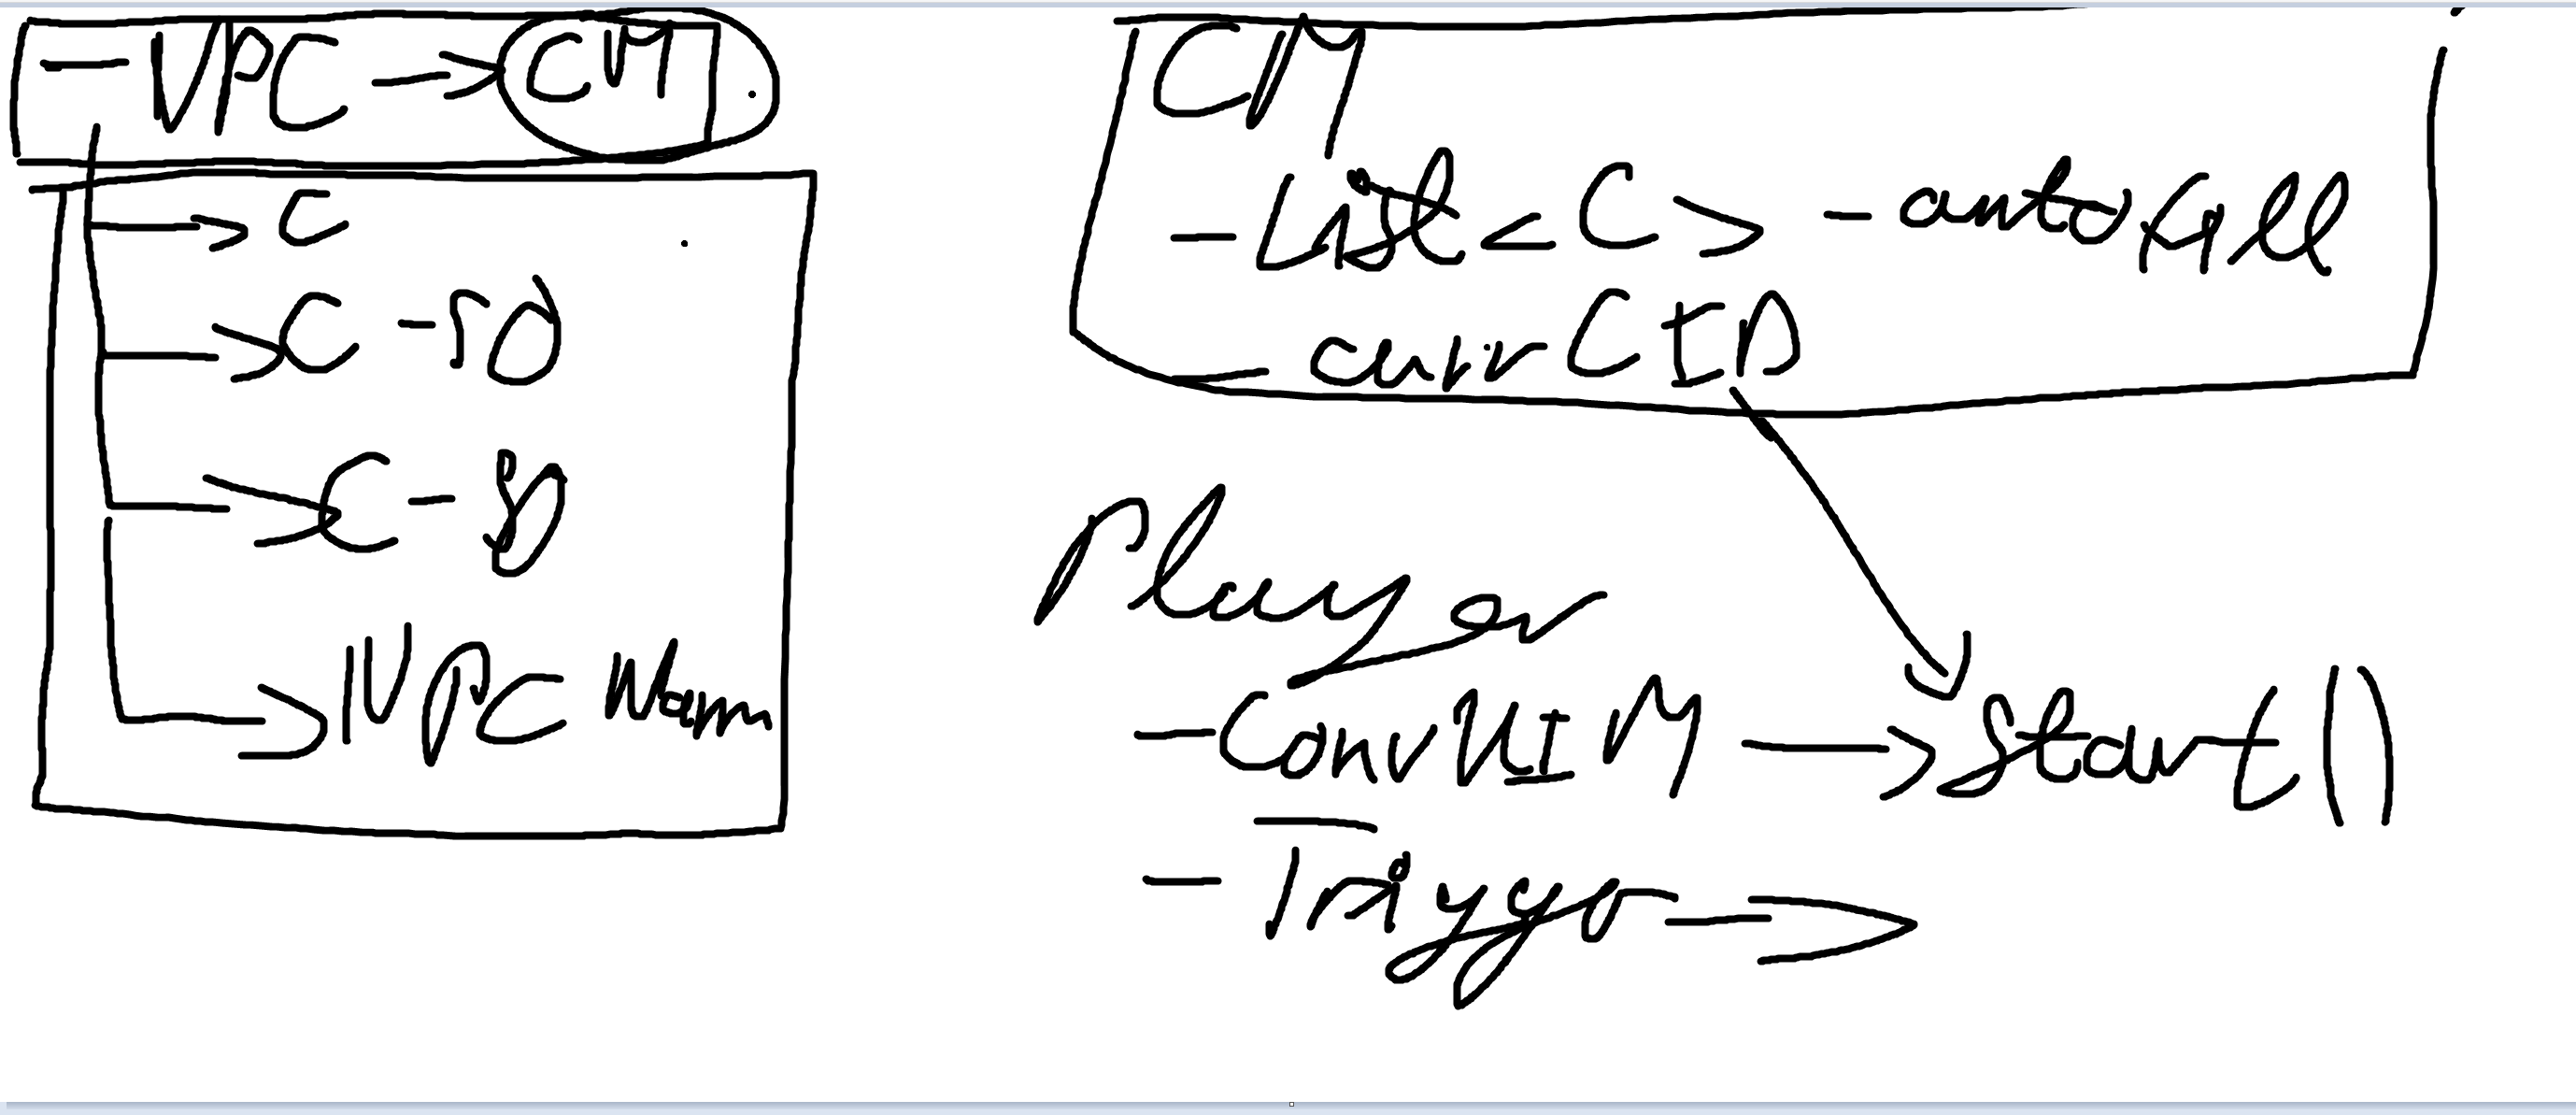 - NPC → CM
→ C
→ C - 10
→ C - 8
→ NPC Nam
CM
- List < C > - autofill
- curr CID
Player
- Conv UI M → Start ()
- Trigger →